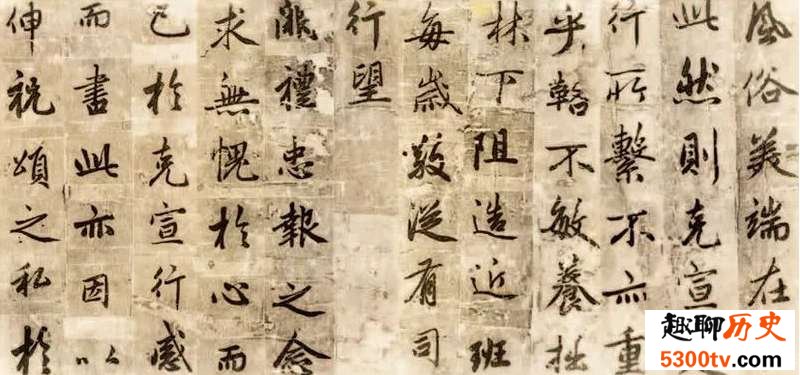 風俗美端在
此然則克宣
行所繫不亦重
乎輅不敏養拙
林下阻造近班
每歲敬從有司
行望
闕禮忠報之念
求無愧於心而
已於克宣行感
而書此亦因以
伸祝頌之私於
趣聊历史
5300tv.com